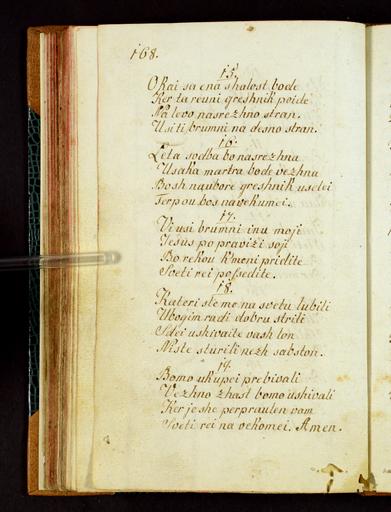 168.
15.
O kai sa ena shalost bode
Ker ta reuni greshnik poide
Na levo nasrezhno stran.
Usi ti brumni na desno stran.
16.
Leta sodba bo nasrezhna
Usaka martra bode vezhna
Bosh naubore greshnik uselei
Terpou bos navekumei.
17.
Vi usi brumni inu moji
Jesus po pravizi soji
Bo rekou k'meni pridite
Sveti rei possedite.
18.
Kateri ste me na svetu lubili
Ubogim radi dobru strili
Sdei ushivaite vash lon
Niste sturili nezh sabston.
19.
Bomo ukupei prebivali
Vezhno zhast bomo ushivali
Ker je she perpraulen vam
Sveti rei na vekomei. Amen.